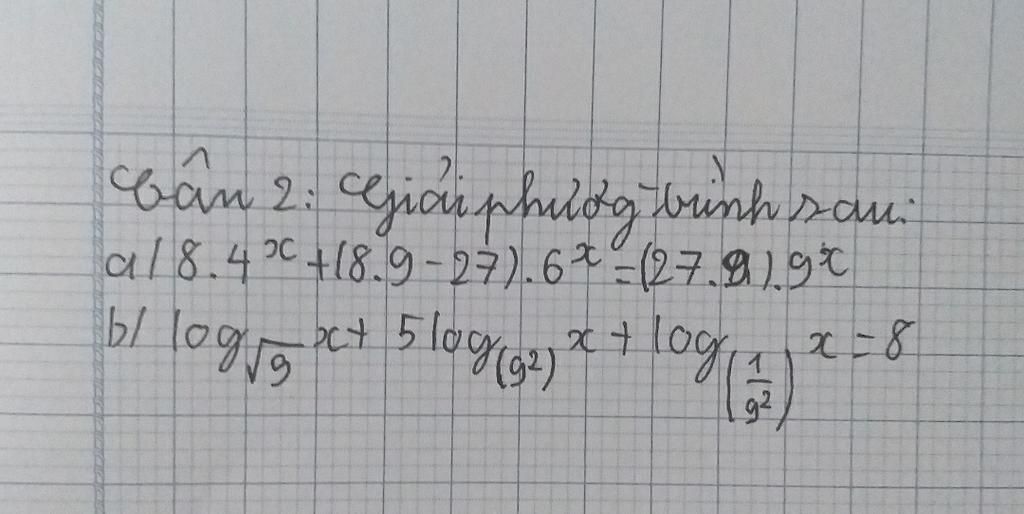 Câu 2: Giải phương trình sau:
a/ 8.4^x + (8.9 - 27).6^x = (27.9).9^x
b/ log_{√9} x + 5 log_{(9^2)} x + log_{(1/9^2)} x = 8